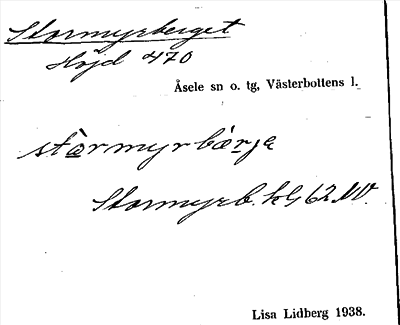 Stormyrberget
Höjd 470
Åsele sn o. tg, Västerbottens l.
stormyrbärja
Stormyrb. kG 62 NV.
Lisa Lidberg 1938.